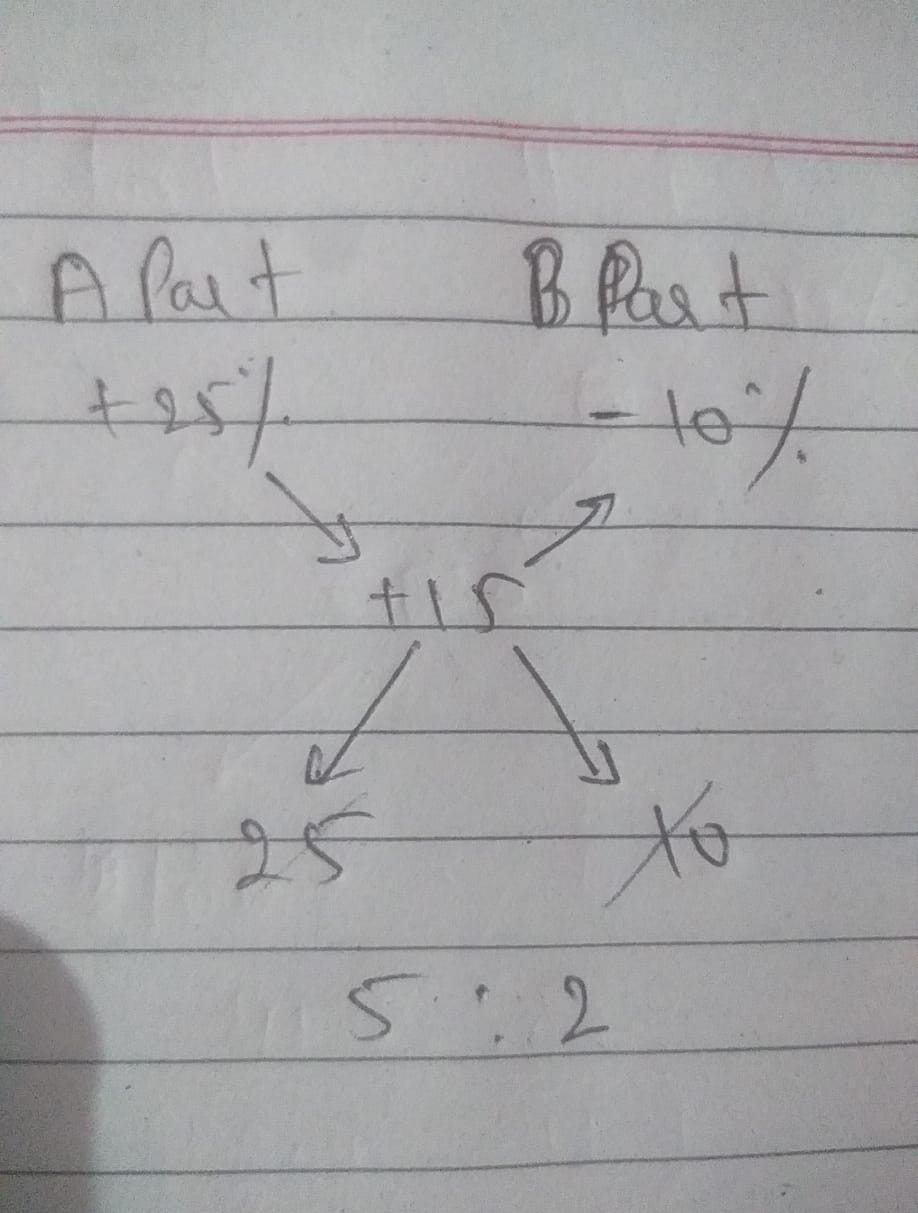 A Part B Part
+25% -10%
+15
25 10
5 : 2